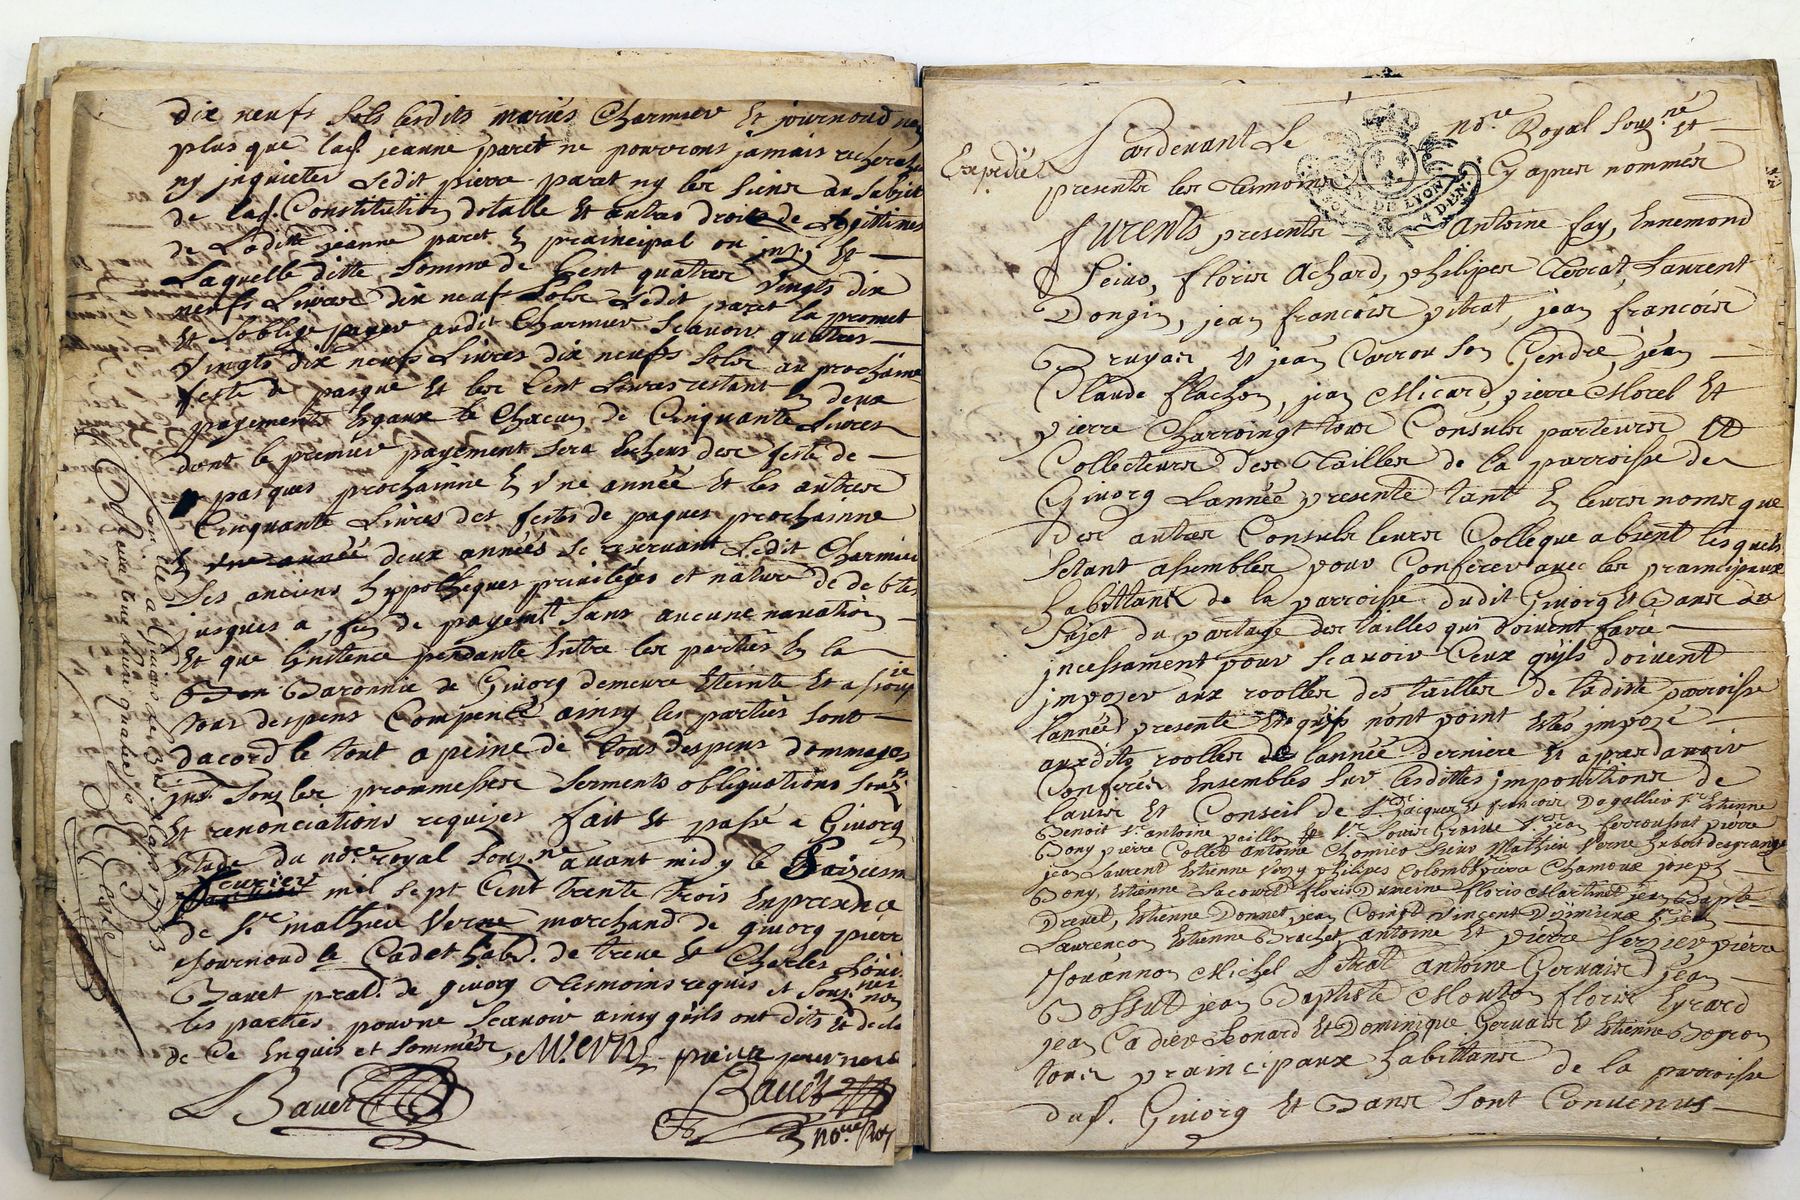 dix neufs sols lesdits mariés Charmier Et journoud
plus que lad. jeanne paret ne pourront jamais
ny jnquieter Ledit pierre paret ny les siens au subjet
de lad. Constitution dotalle Et autres droits de Legittimes
de Laditte jeanne paret En praincipal ou Et
Laquelle ditte somme de Cent quatres Vingts dix
neufs Livres dix neuf sols Ledit paret la promet
Et soblige payer audit Charmier scavoir quatres
Vingts dix neufs Livres dix neufs sols au prochaine
feste de pasque Et les Cent Livres restant En deux
payements Egaux de Chacun de Cinquante Livres
dont le premier payement sera Echeus des feste de
pasques prochainne En Vne année Et les autres
Cinquante Livres des festes de paques prochainne
En vne année deux années se reservant Ledit Charmier
Ses anciens hypothèques privileges et nature de debtes
jusques a fin de payemt sans aucune novation
Et que Linstence pendante Entre les parties En la
Baronnie de Givorg demeure Eteinte Et assoupie
tous despens Compencé ainsy les parties sont
dacord le tout a peine de tous despens dommages
jnt. sous les prommesses serments obligations soubns
Et renonciations requizes fait Et passé a Givorg
Etude du nore royal sousne avant midy le
feurier mil sept Cent trente trois En presence
de sr mathieu Verne marchand de givorg pierre
Journoud le Cadet habt. de treve Et Charles
Bavet prat. de givorg tesmoins requis et sous.
les parties pour ne scavoir ainsy quils ont dits Et decla
de Ce Enquis et sommés,
M. Verne pierre journoud
Bavet
Bavet
nore Roy
Expediée
Pardevant Le nore Royal sousne Et
presents les tesmoins Cy apres nommés
GEN DE LYON
4 DEN.
furents presents Antoine fay, Ennemond
Seive, floris Achard, philipes Terrat, Laurent
Dongin, jean françois pitrat, jean françois
Bruyas Et jean Carrou son Gendre, jean
Claude flachon, jean Micard, pierre Morel Et
pierre Charroingt tous Consuls parteurs Et
Collecteurs des Tailles de la parroisse de
Givorg Lannée presente tant En leurs noms que
des autres Consuls leurs Collegue absent lesquels
setant assembles pour Conferer avec les praincipaux
habittant de la parroisse dudit Givorg Et Bans au
sujet du partage des tailles qui doivent faire
jncessament pour scavoir Ceux quils doivent
jmposer aux roolles des tailles de laditte parroisse
lannée presente Et quils nont point Estés jmposé
auxdits roolles de lannée derniere Et apres avoir
Conferés Ensembles sur lesdittes jmpositions de
lavis Et Conseil de srs Jacques Et françois Dogallier sr Estienne
Benoit sr antoine paillon sr Louis sr jean ferroussat pierre
Bony pierre Collet antoine Chomier sieur Mathieu Verne hubert desgrange
jean Laurent Estienne Verzy philipes Colomb pierre Chamoux joseph
Bony, Estienne Lacourt floris Dumeine floris Martinet jean Bapte
Drevet, Estienne Donnet, jean Vincent sr jean
Laurenco, Estienne Brachet, antoine Et pierre Verzier pierre
Jouannon Michel Pitrat antoine Gervais jean
Bossut jean Baptiste Mouton floris Eyrard
jean Cadier Leonard Et Dominique Gervais Et Estienne
tous praincipaux habittans de la parroisse
dud. Givorg Et Bans sont Convenus